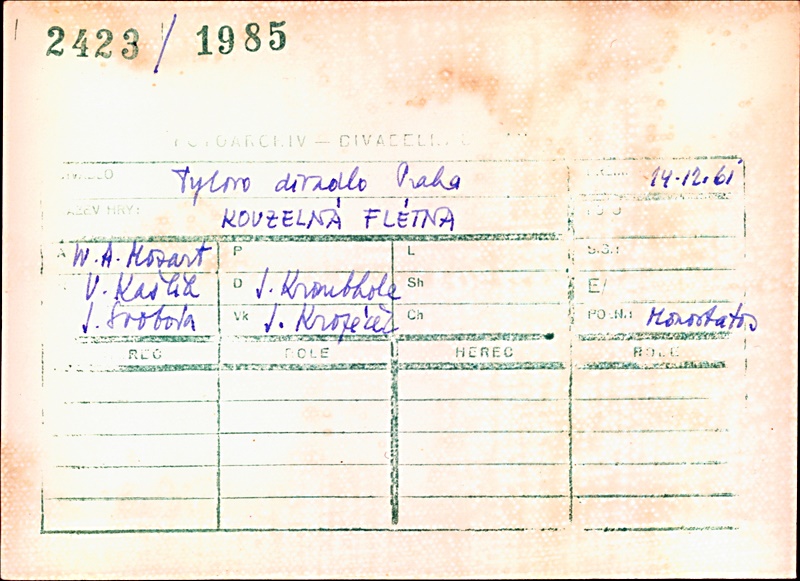 2423 / 1985
FOTOARCHIV — DIVADELNÍ
DIVADLO Tylovo divadlo Praha 14.12.61
NÁZEV HRY: KOUZELNÁ FLÉTNA
A W. A. Mozart P L S.S.:
V. Kašlík D J. Krombholc Sh E/
J. Svoboda Vk J. Ch POZN.: Monostatos
HEREC ROLE HEREC ROLE